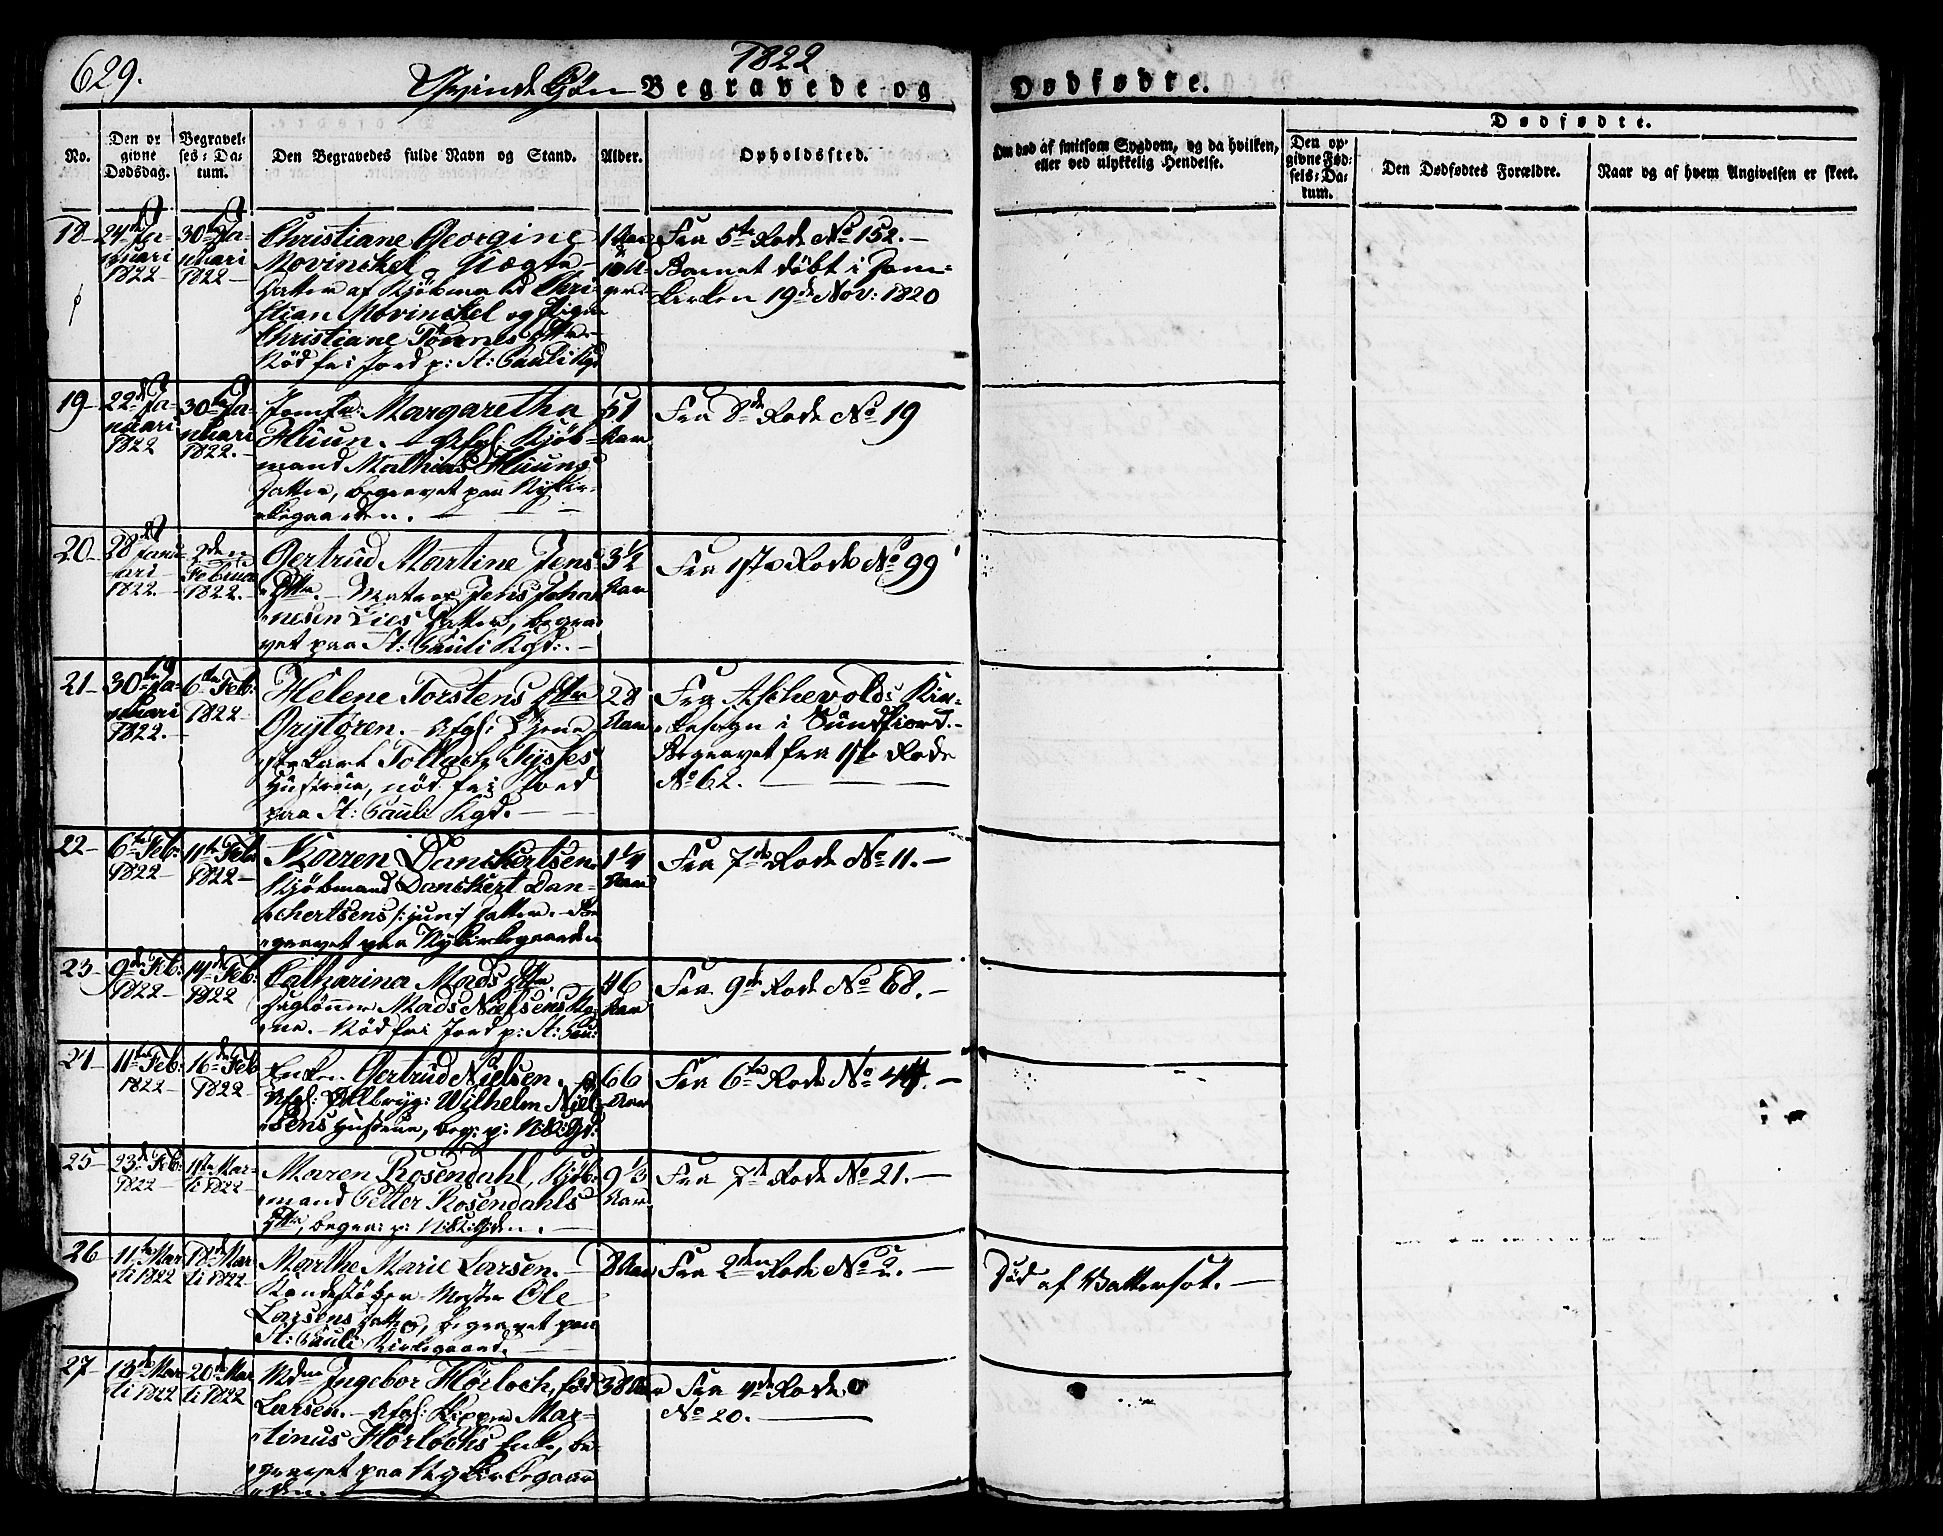 629.
1822
Qvinde Kön Begravede og Dødfødte.
No.
Den op
givne
Dødsdag.
Begravel-
ses: Da-
tum.
Den Begravedes fulde Navn og Stand.
Alder.
Opholdssted.
Om død af smitsom Sygdom, og da hvilken,
eller ved ulykkelig Hendelse.
Dødfødte.
Den op-
givne Fød-
sels: Da-
tum.
Den Dødfødtes Forældre.
Naar og af hvem Angivelsen er skeet.
18
24de Ja-
nuari
1822
30te Ja-
nuari
1822
Christiane Georgine
Movinckel, Ægte
Datter af Kjöbmand Chri-
stian Movinckel og Pige
Christiane Tönnes Dttr
Nöd fri Jord p: St: Pauli Kgd
1 Aar
Fra 5te Rode No 152.
Barnet döbt i Dom-
kirken 19de Nov: 1820
19
22de Ja-
nuari
1822
30te Ja-
nuari
1822.
Jomfr: Margaretha
Huun. Afgl: Kjöb-
mand Mathias Huuns
Datter, begravet paa Nykir-
kegaarden.
51
Aar
Fra 8de Rode No 19
20
28de Janu-
ari
1822.
2den
Februar
1822.
Gertrud Martine Jens-
Dttr. Matros Jens Johan-
nesen Lies Datter, begra-
vet paa St: Pauli Kgd:.
3 1/2
Aar
Fra 1ste Rode No 99
21
30te Ja-
nuari
1822.
6te Feb:
1822
Helene Torstens Dttr
Grytören. Afgl:
Tollach Tysses
Hustrue, nöd fri Jord
paa St: Pauli Kgd.
28
Aar
Fra Aschevolds Kir-
kesogn i Sundfiord.
Begravet fra 1ste Rode
No 62.
22
6te Feb:
1822
11te Feb:
1822
Karen Danckertsen
Kjöbmand Danckert Dan-
ckertsens /:jun:/ Datter. Be-
gravet paa Nykirkegaarden
1 1/4
Aar
Fra 7de Rode No 11.
23
9de Feb:
1822
14de Feb:
1822
Catharina Mads Dttr.
Daglönner Mads Nielsens Ko-
ne. Nöd fri Jord p: St: Pau:
46
Aar
Fra 9de Rode No 68.
24
11te Feb:
1822
16de Feb
1822
Enken Gertrud Nielsen.
Afgl: Ölbryg: Wilhelm Niel-
sens Hustrue, beg: p: N: K: Gd:
66
Aar
Fra 6te Rode No 44.
25
23de Feb:
1822
1ste Mar-
ti 1822
Maren Rosendahl, Kjöb-
mand Petter Rosendahls
Dttr, begra: p: N: K: Gden.
9 1/3
Aar
Fra 7de Rode No 21.
26
11te Mar
ti 1822
18de Mar
ti 1822
Marthe Marie Larsen.
Kandestöber Mester Ole
Larsens Datter, begravet paa
St: Pauli Kirkegaard.
8 Aar
Fra 2den Rode No 2.
Död af Vattersot.
27
13de Mar
ti 1822
20de Mar
ti 1822
Mdme Ingebor Hörloch, föd
Larsen. Afgl: Skipper Mar-
tinus Hörlochs Enke, be-
gravet paa Nykirkegaar-
den.
38 Aar
Fra 4de Rode
No 20.